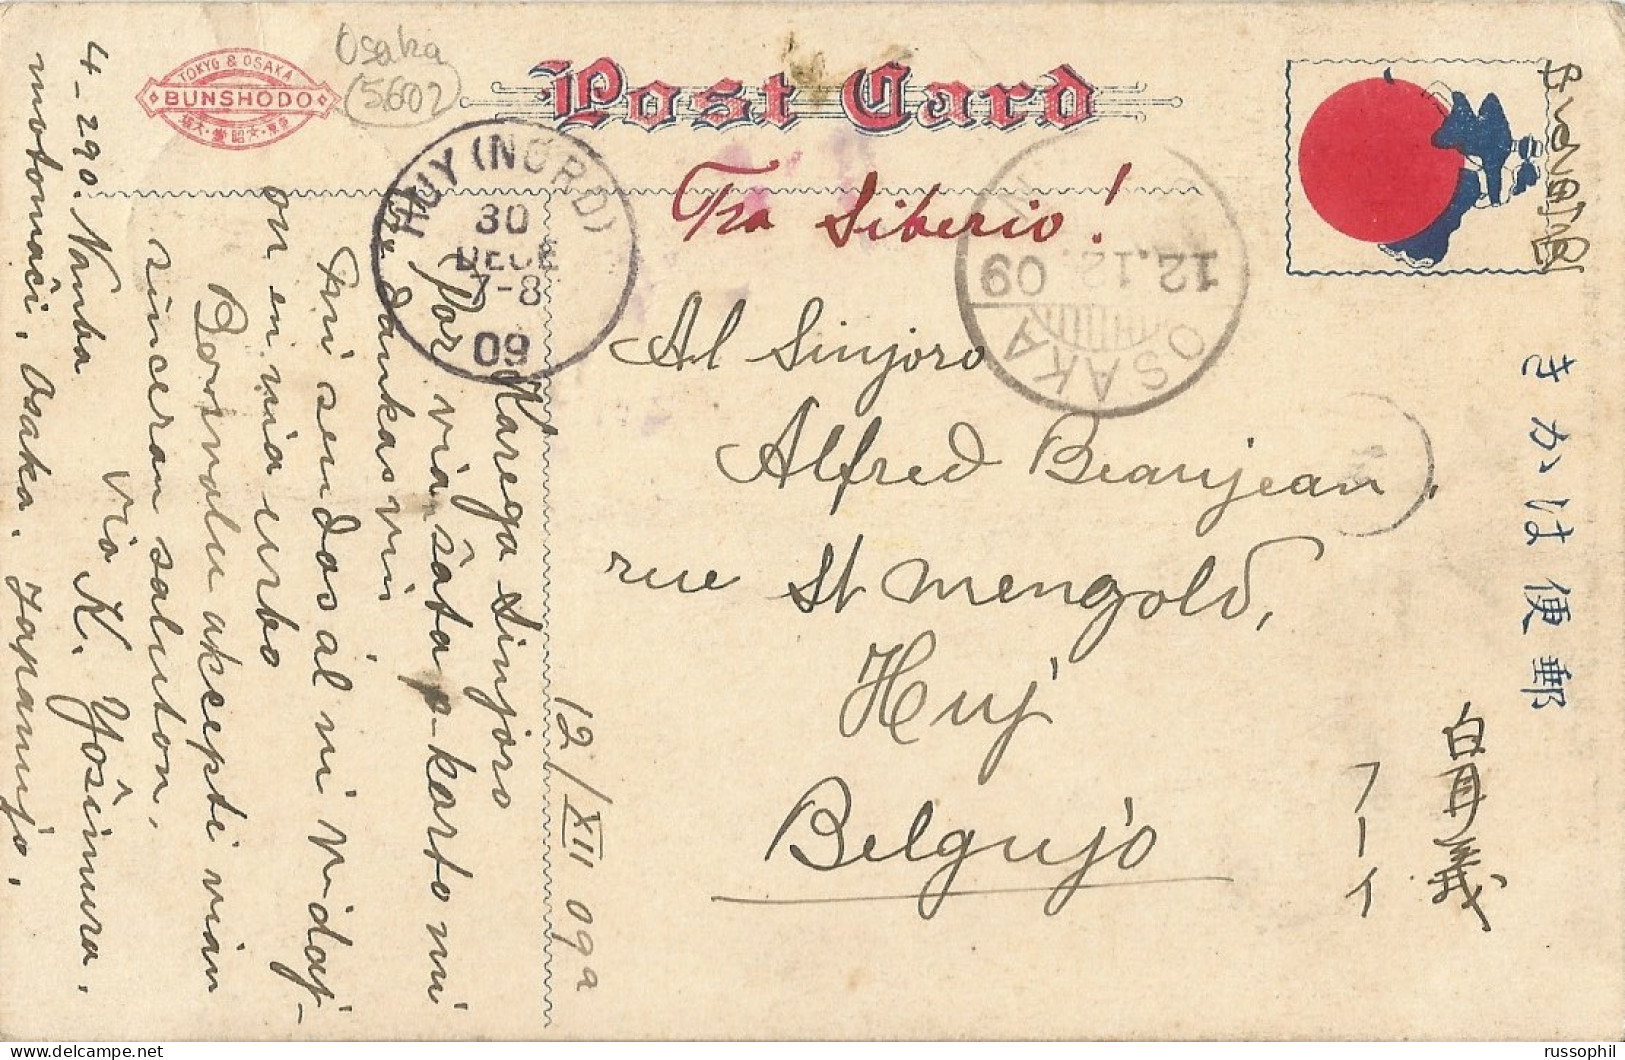 TOKYO & OSAKA
BUNSHODO
Osaka
(5602)
Post Card
HUY (NORD)
30
DECE
7-8
09
OSAKA
12.12.09
Tra Siberio!
Al Sinjoro
Alfred Beaujean.
rue St mengold,
Huj
Belgujo
きかは便郵
白耳義
フーイ
12/XII 09a
Karega Sinjoro
Por via ŝata p-karto mi
dankas vin
Mi sendos al ni vidaj-
on en mia urbo
Bonvolu akcepti mian
sinceran saluton.
Via K. Yoŝimura.
4-290. Namba
motomaĉi, Osaka. Japanujo.
russophil
delcampe.net